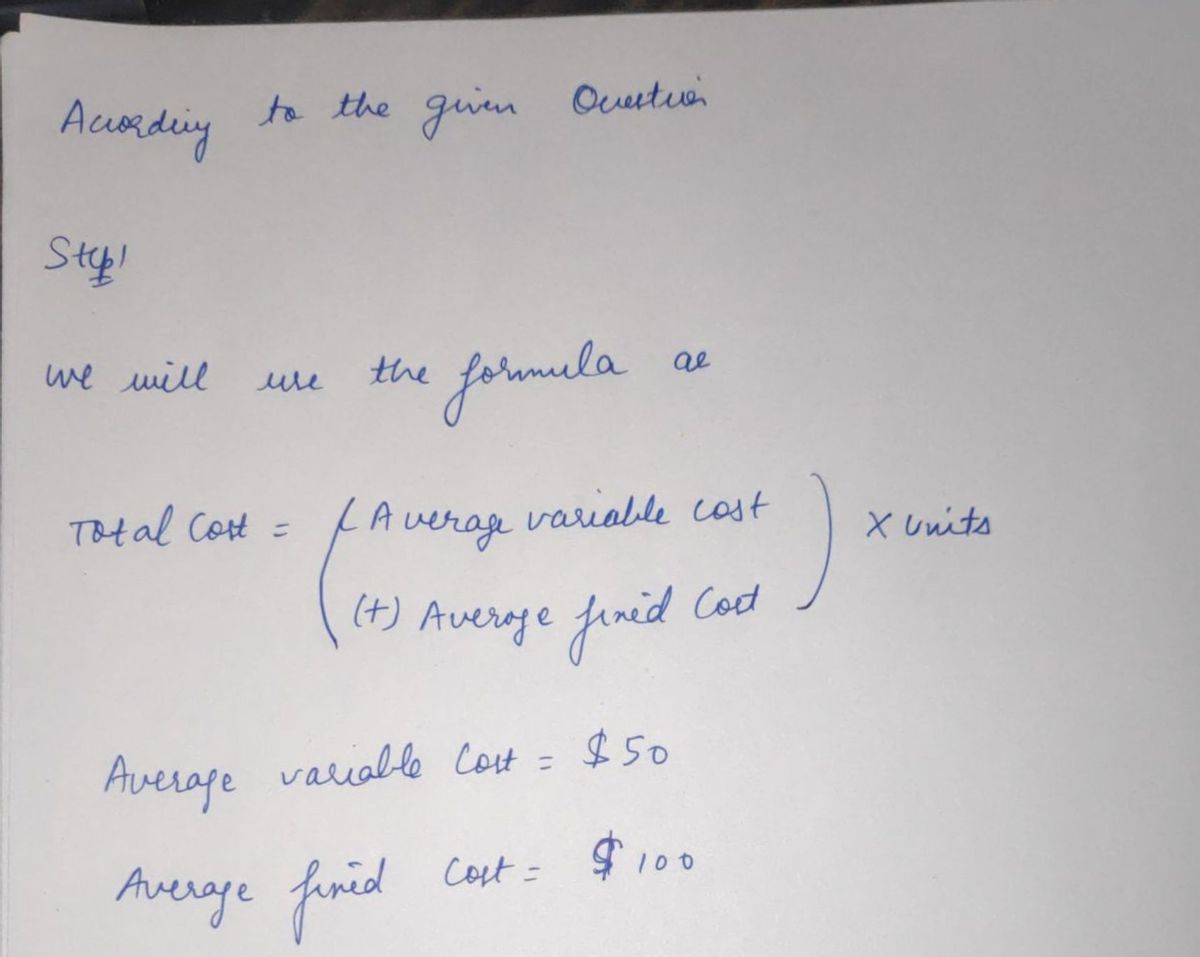 According to the given Question
Step 1
we will use the formula as
Total Cost = ( Average variable cost
(+) Average fixed Cost ) X Units
Average variable Cost = $50
Average fixed Cost = $100